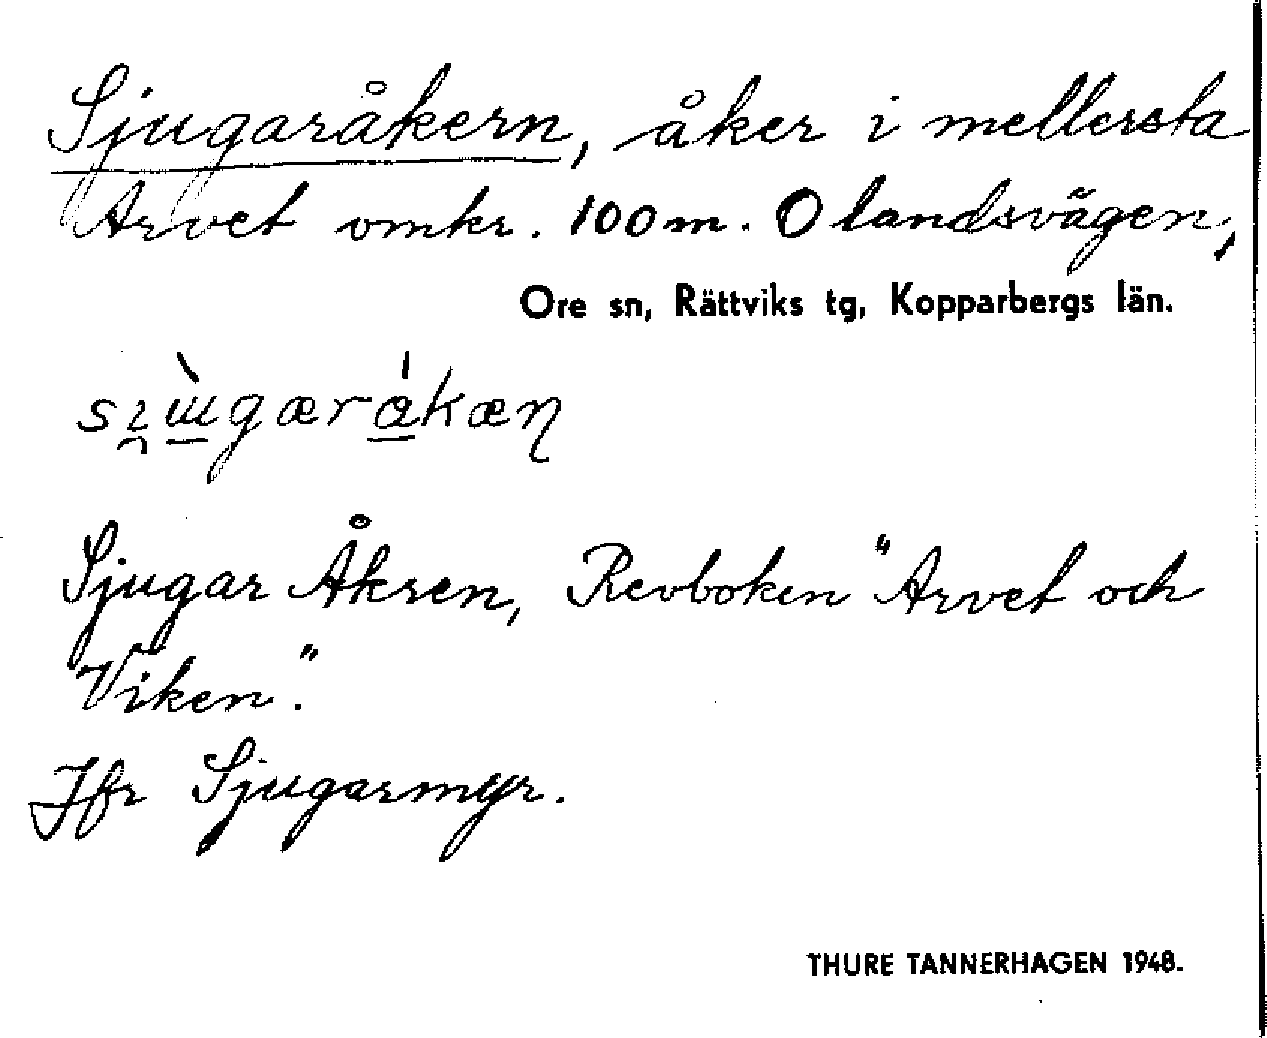 Sjugaråkern, åker i mellersta
Arvet omkr. 100 m. O landsvägen,
Ore sn, Rättviks tg, Kopparbergs län.
Sjugar Åkren, Revboken "Arvet och
Viken".
Jfr Sjugarmyr.
THURE TANNERHAGEN 1948.